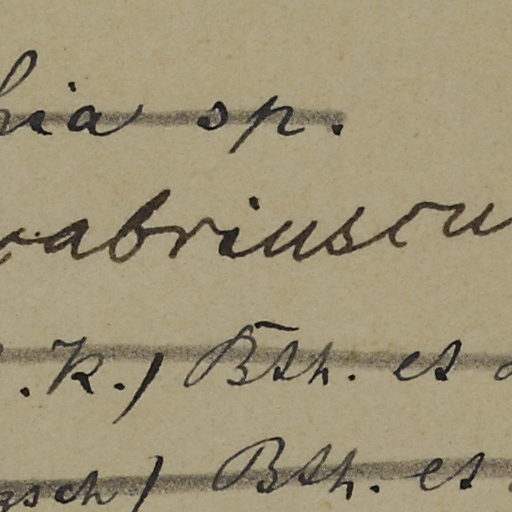 hia sp.
cabriuscu
. K.) Bth. et
gsch) Bth. et